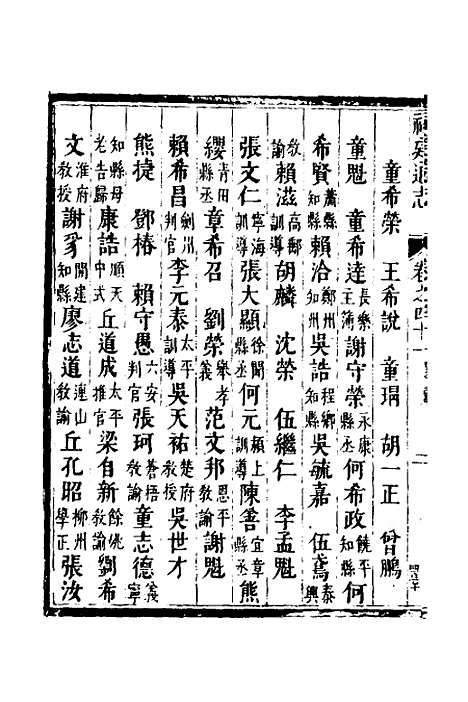 福建通志
卷之四十一
童希榮 王希說 童瑁 胡一正 曾鵬
童魁 童希達長樂主簿謝守榮永康縣丞何希政饒平知縣何
希賢蕭縣知縣賴洽鄭州知州吳誥程鄉知縣吳毓嘉 伍鳶泰興
教諭賴滋高郵訓導胡麟 沈榮 伍繼仁 李孟魁
張文仁寧海訓導張大顯徐聞訓導何元潁上訓導陳善宜章縣丞熊
纓青田縣丞章希召 劉榮舉孝義范文邦恩平教諭謝魁
賴希昌劍州判官李元泰太平訓導吳天祐楚府教授吳世才
熊捷 鄧椿 賴守愚六安判官張珂蒼梧教諭童志德義寧
知縣母老告歸康誥順天中式丘道成太平推官梁自新餘姚教諭劉希
文淮府教授謝豸開建知縣廖志道連山教諭丘孔昭柳州學正張汝